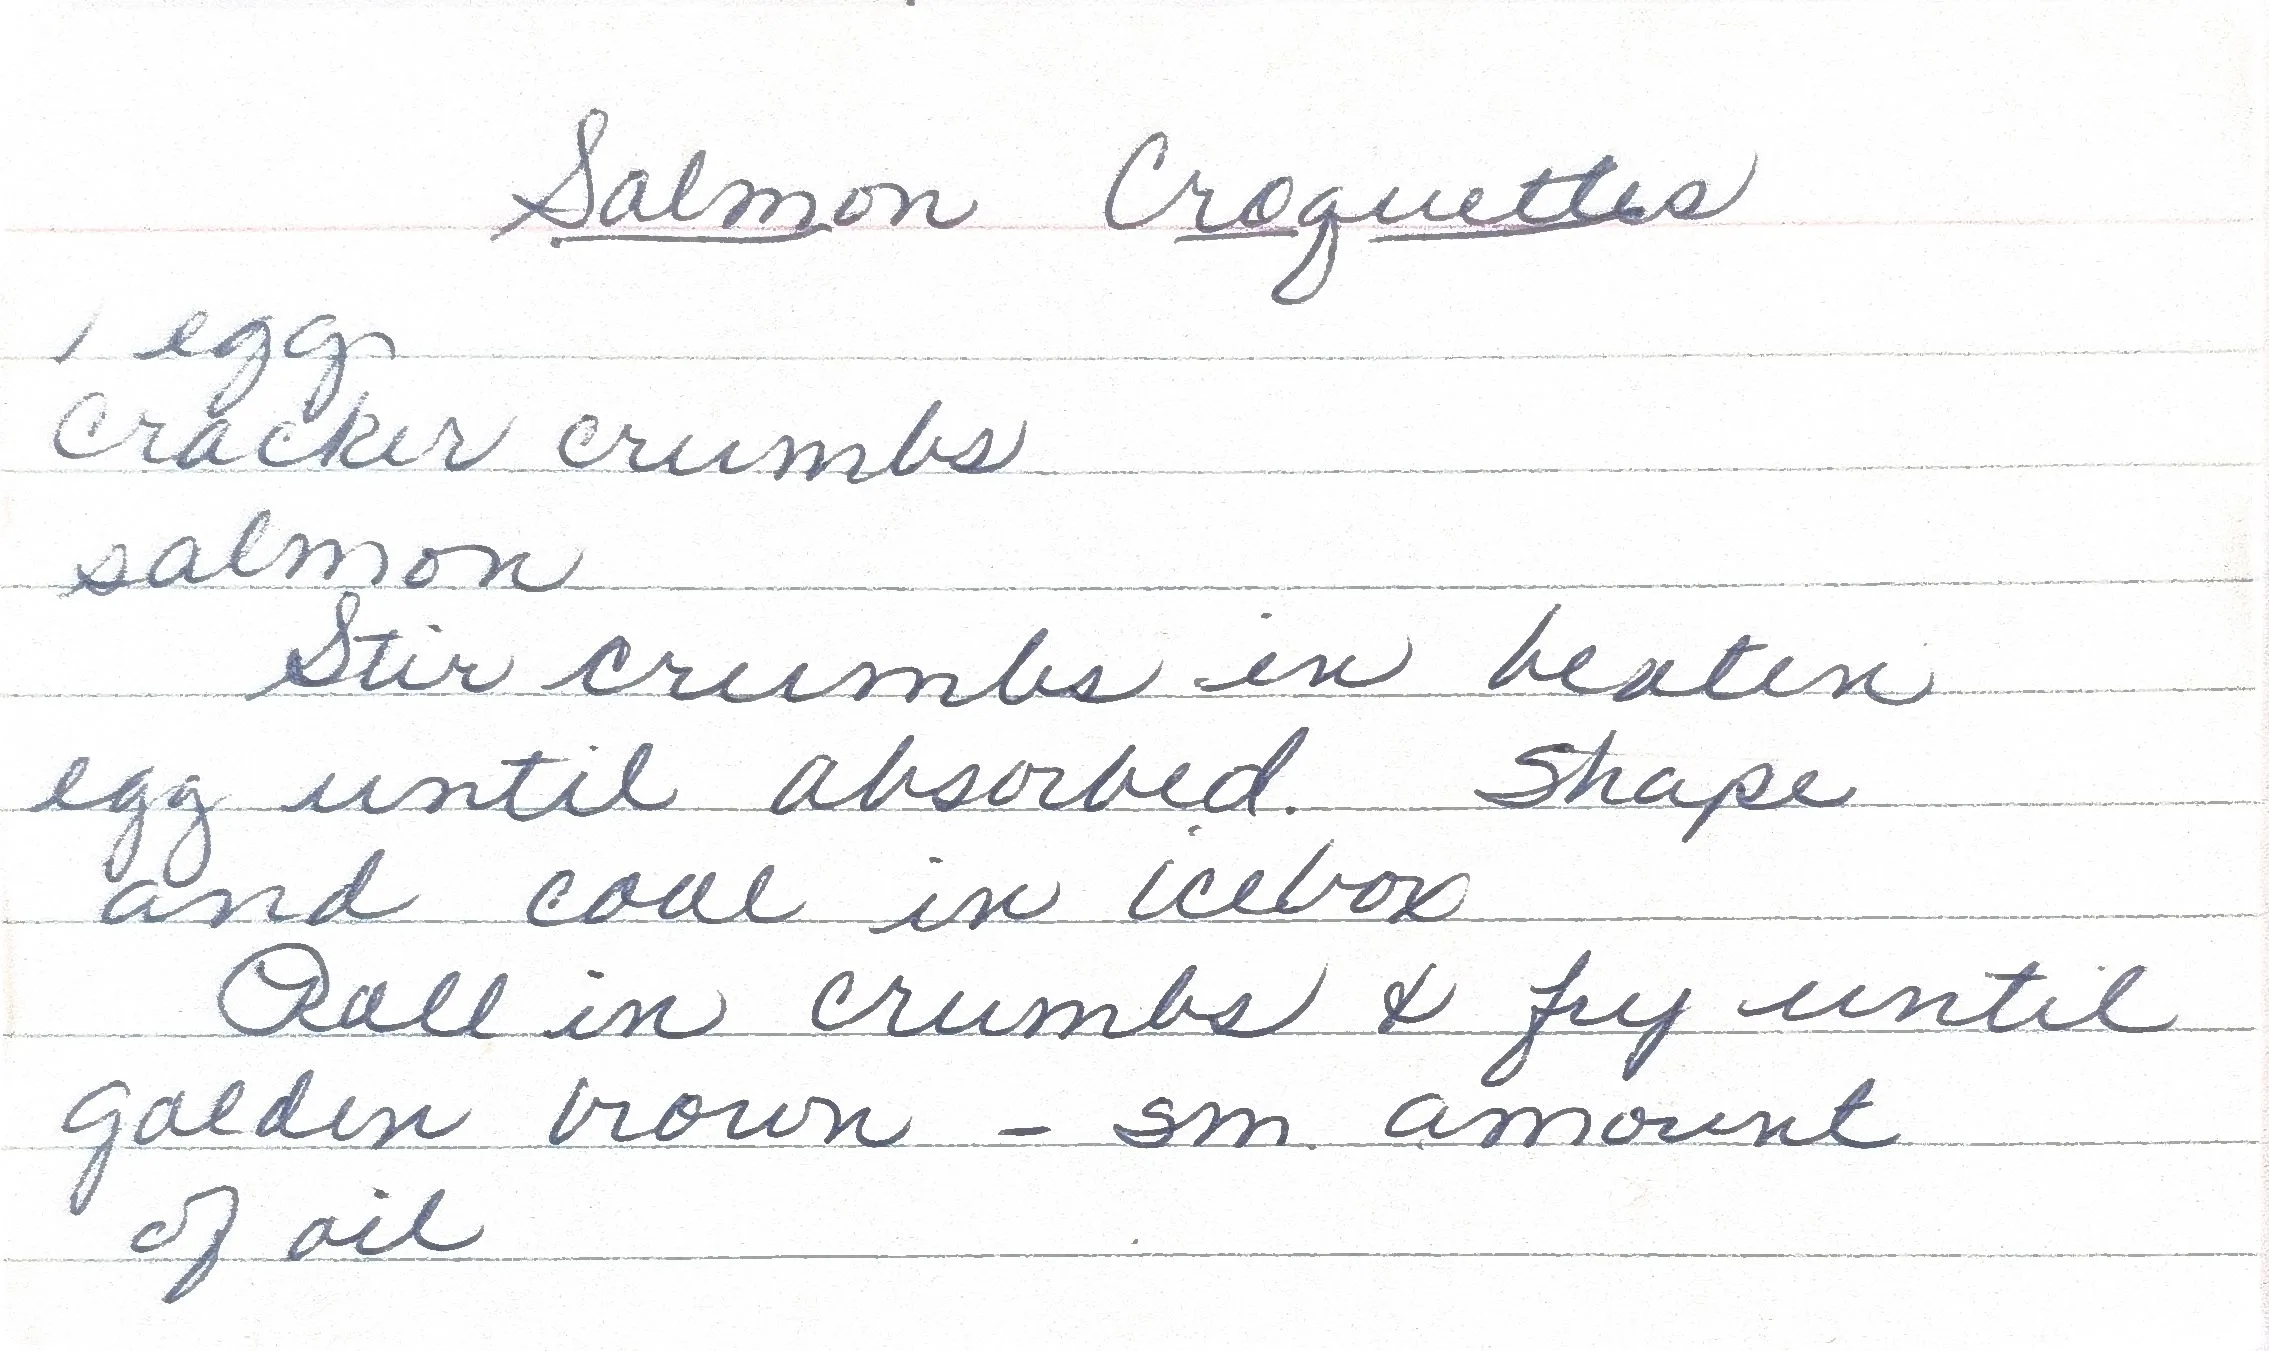 Salmon Croquettes
1 egg
Cracker crumbs
salmon
Stir crumbs in beaten
egg until absorbed. Shape
and cool in icebox
Roll in crumbs & fry until
golden brown - sm. amount
of oil